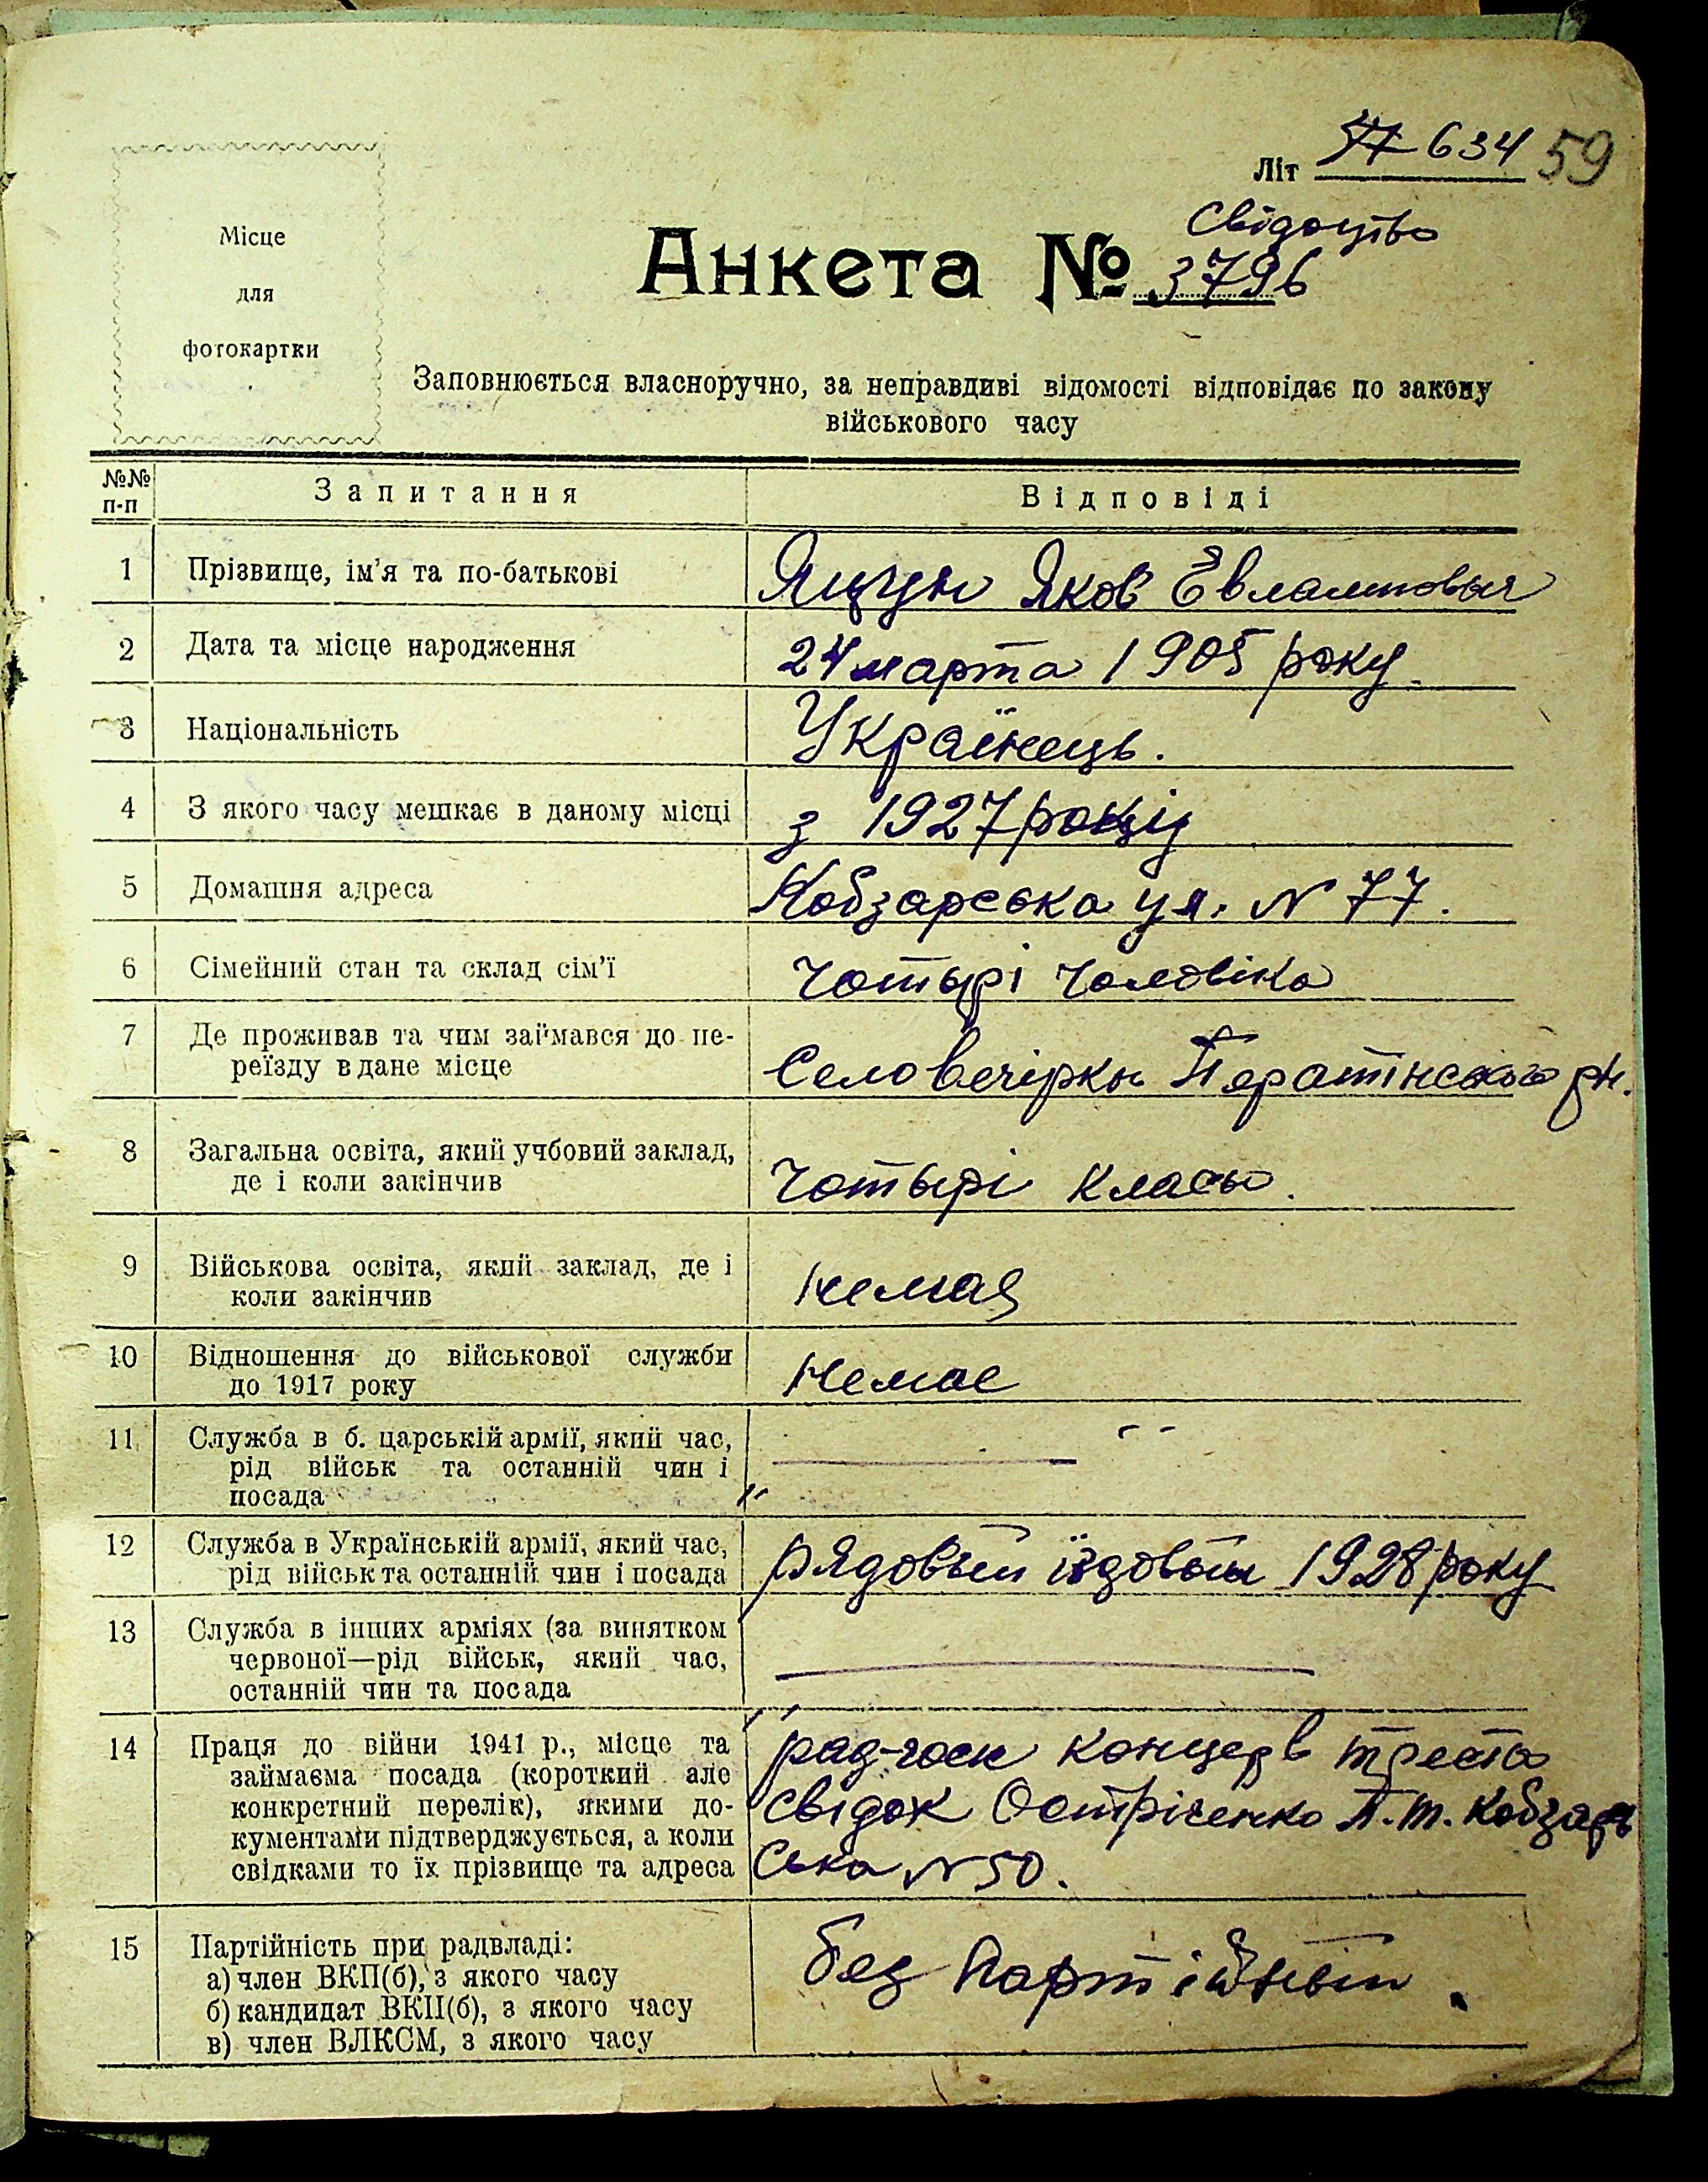 Літ 634 59
Місце
для
фотокартки
Свідоцтво
Анкета № 3796
Заповнюється власноручно, за неправдиві відомості відповідає по закону
військового часу
№№ п-п Запитання Відповіді
1 Прізвище, ім'я та по-батькові Яцун Яков Евлампович
2 Дата та місце народження 24 марта 1905 року
3 Національність Українець.
4 З якого часу мешкає в даному місці з 1927 року
5 Домашня адреса Кобзарська ул. N 77.
6 Сімейний стан та склад сім'ї Чотырі чоловіка
7 Де проживав та чим займався до пе-
реїзду в дане місце Село Вечірки Ператінського рн.
8 Загальна освіта, який учбовий заклад,
де і коли закінчив Чотырі класы.
9 Військова освіта, який заклад, де і
коли закінчив немає
10 Відношення до військової служби
до 1917 року немае
11 Служба в б. царській армії, який час,
рід військ та останній чин і
посада
12 Служба в Українській армії, який час,
рід військ та останній чин і посада рядовый їздовый 1928 року
13 Служба в інших арміях (за винятком
червоної—рід військ, який час,
останній чин та посада
14 Праця до війни 1941 р., місце та
займаєма посада (короткий але
конкретний перелік), якими до-
кументами підтверджується, а коли
свідками то їх прізвище та адреса
концерв треста
свідок Остріченко П.т. Кобзарь
ська N 50.
15 Партійність при радвладі: без Партійный.
а) член ВКП(б), з якого часу
б) кандидат ВКП(б), з якого часу
в) член ВЛКСМ, з якого часу